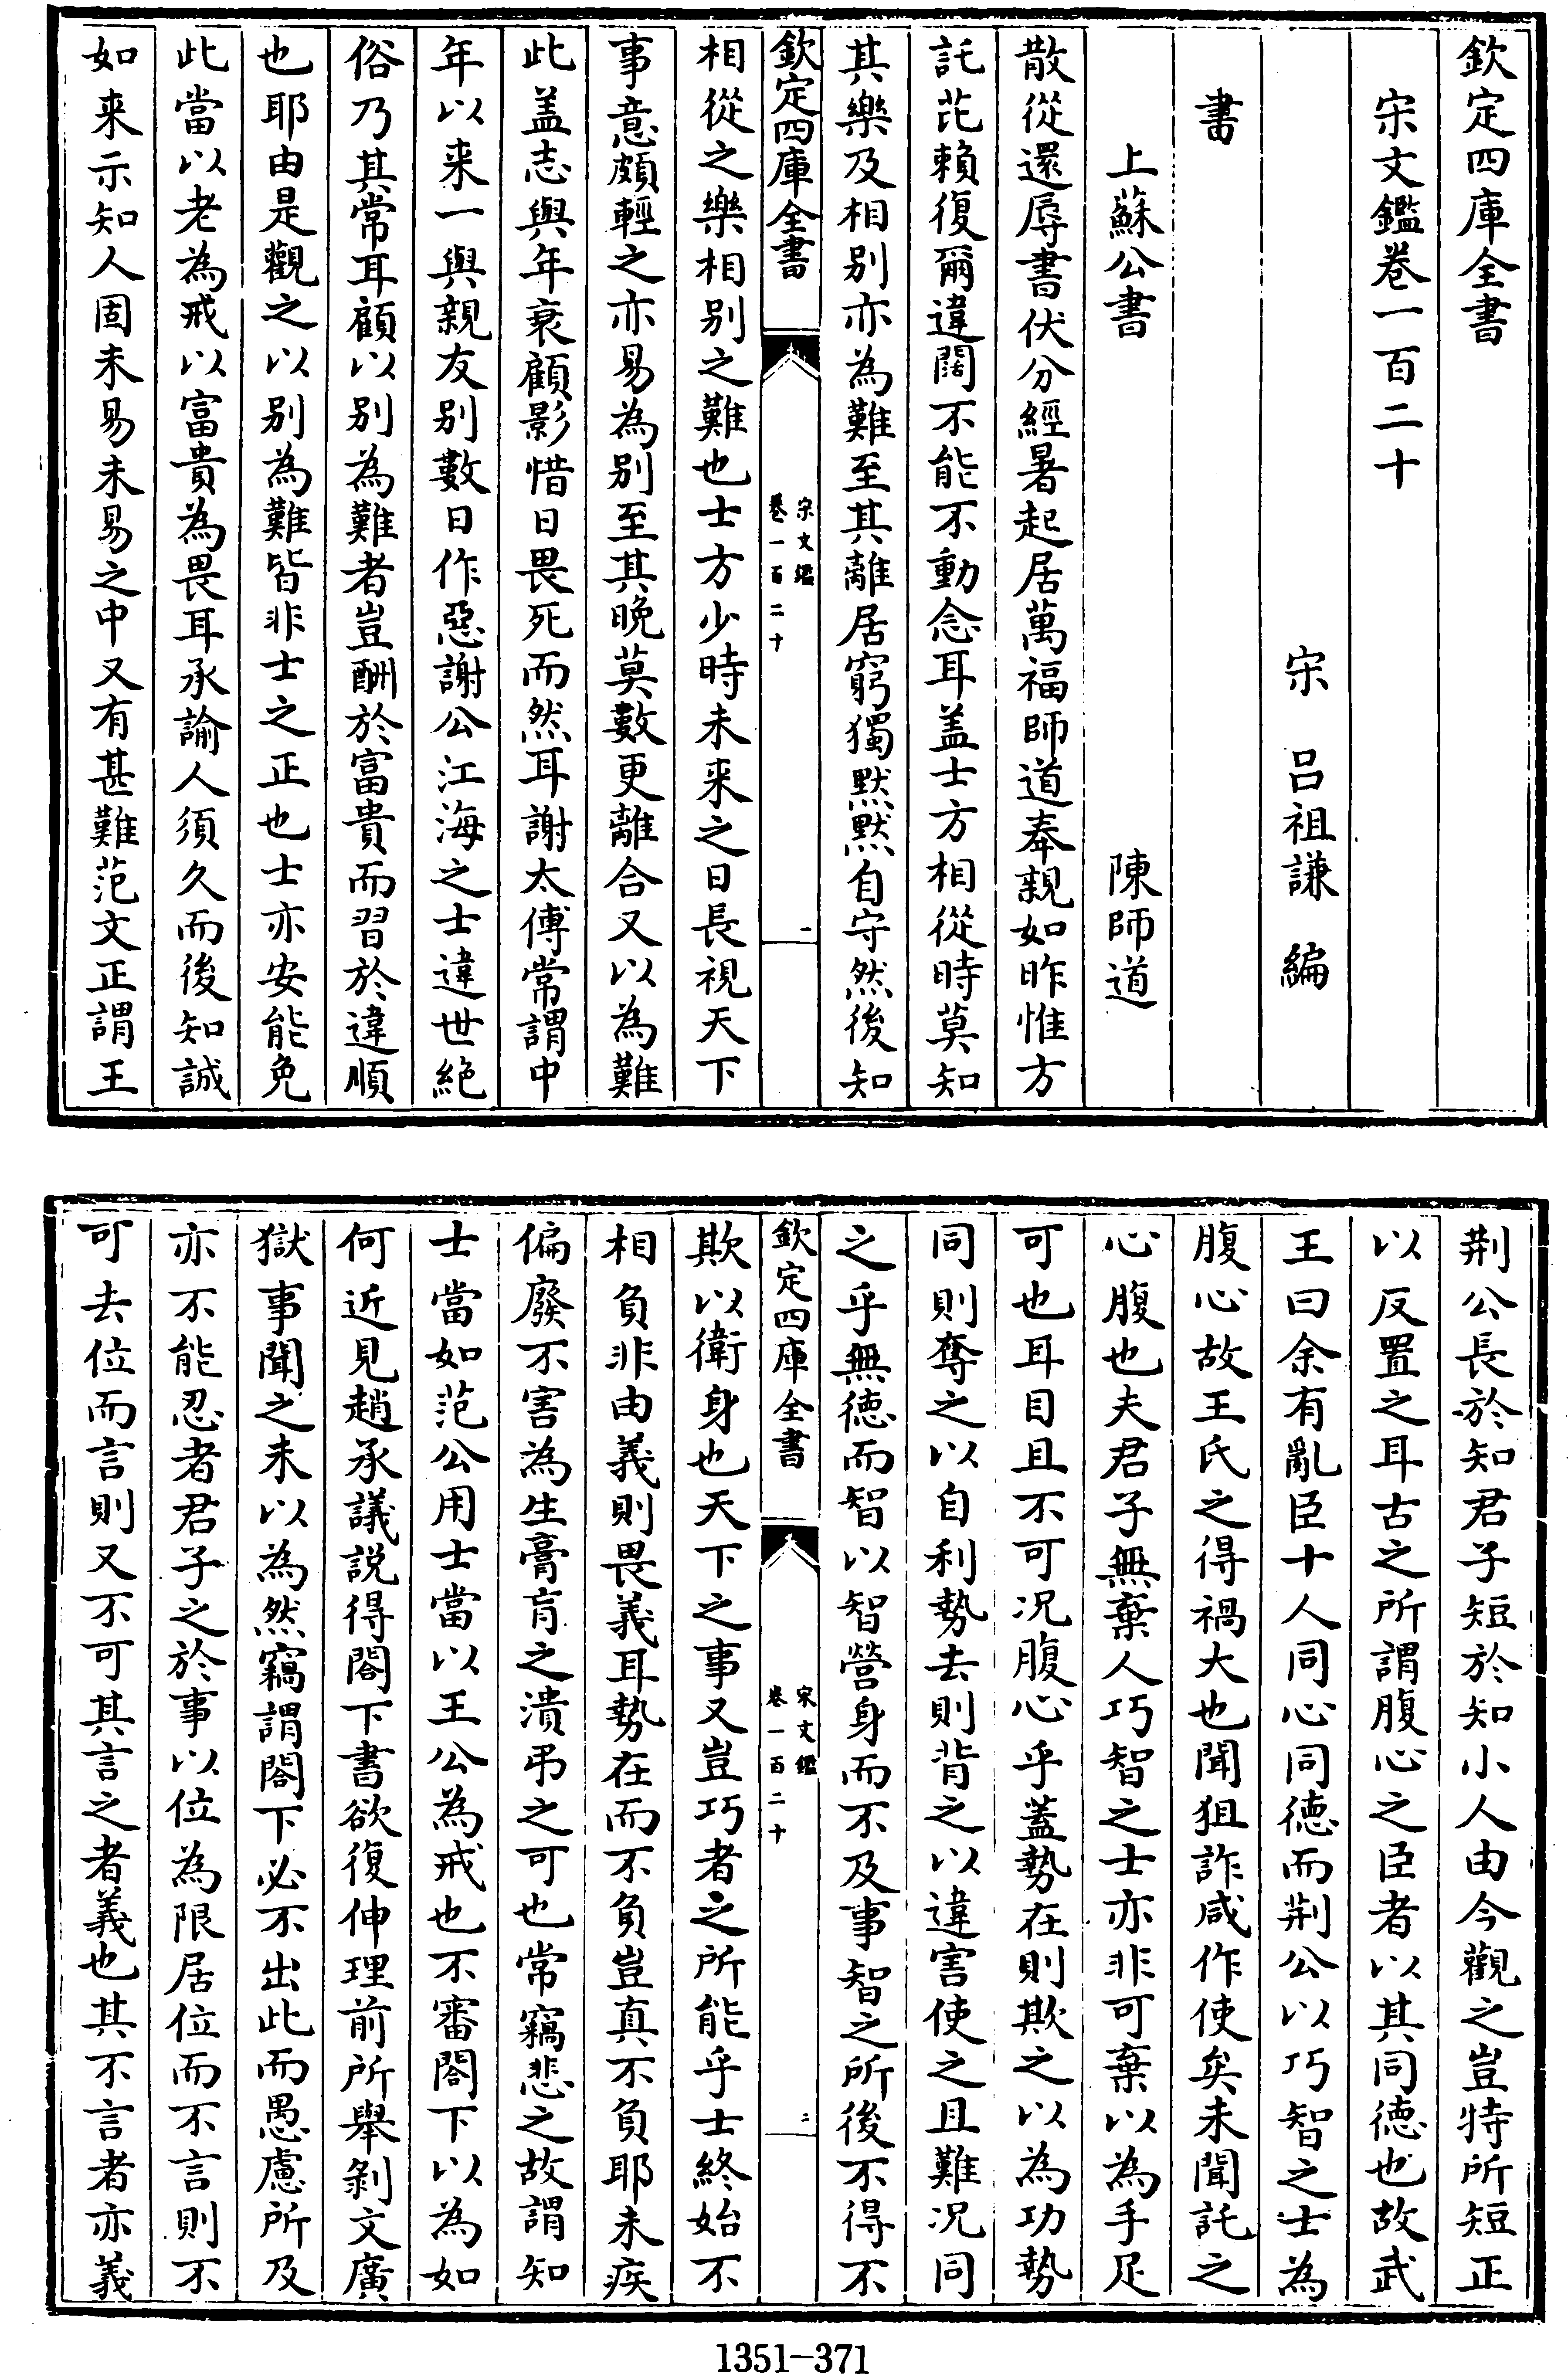 欽定四庫全書
宋文鑑卷一百二十
宋　吕祖謙　編
書
上蘇公書　陳師道
散從還辱書伏分經暑起居萬福師道奉親如昨惟方
託芘賴復爾違闊不能不動念耳盖士方相從時莫知
其樂及相别亦為難至其離居窮獨默默自守然後知
欽定四庫全書
宋文鑑
卷一百二十
一
相從之樂相别之難也士方少時未来之日長視天下
事意頗輕之亦易為别至其晚莫數更離合又以為難
此盖志與年衰顧影惜日畏死而然耳謝太傅常謂中
年以来一與親友别數日作惡謝公江海之士違世絶
俗乃其常耳顧以别為難者豈酬於富貴而習於違順
也耶由是觀之以别為難皆非士之正也士亦安能免
此當以老為戒以富貴為畏耳承諭人須久而後知誠
如来示知人固未易未易之中又有甚難范文正謂王
荆公長於知君子短於知小人由今觀之豈特所短正
以反置之耳古之所謂腹心之臣者以其同徳也故武
王曰余有亂臣十人同心同徳而荆公以巧智之士為
腹心故王氏之得禍大也聞狙詐咸作使矣未聞託之
心腹也夫君子無棄人巧智之士亦非可棄以為手足
可也耳目且不可况腹心乎蓋勢在則欺之以為功勢
同則奪之以自利勢去則背之以違害使之且難况同
之乎無徳而智以智營身而不及事智之所後不得不
欽定四庫全書
宋文鑑
卷一百二十
二
欺以衛身也天下之事又豈巧者之所能乎士終始不
相負非由義則畏義耳勢在而不負豈真不負耶未疾
偏廢不害為生膏肓之潰弔之可也常竊悲之故謂知
士當如范公用士當以王公為戒也不審閤下以為如
何近見趙承議説得閤下書欲復伸理前所舉剝文廣
獄事聞之未以為然竊謂閤下必不出此而愚慮所及
亦不能忍者君子之於事以位為限居位而不言則不
可去位而言則又不可其言之者義也其不言者亦義
1351-371